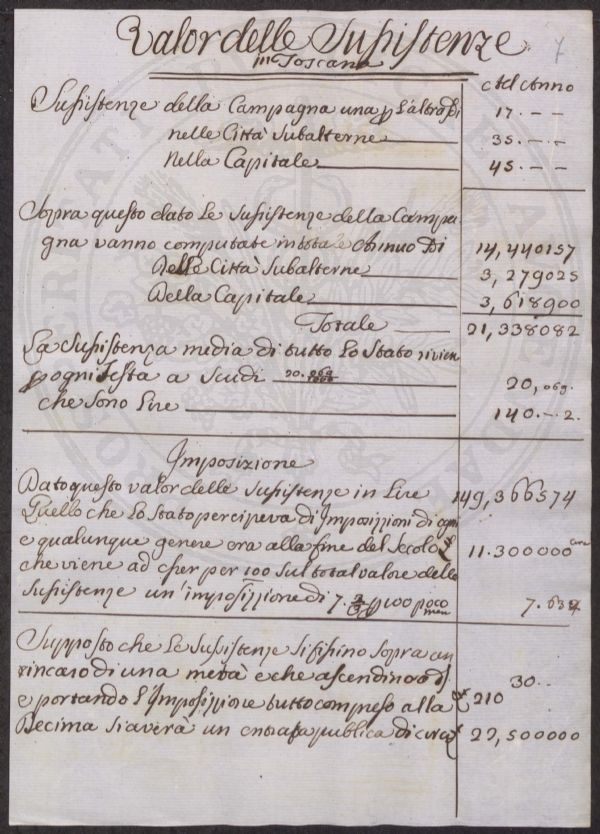 Valor delle Susistenze
in Toscana
7
ad Anno
Susistenze della Campagna una p l'altra Di 17.--
nelle Città Subalterne 35.--
nella Capitale 45.--
Sopra questo dato Le Susistenze della Campa
gna vanno computate in totale Annuo Di 14,440157
Delle Città Subalterne 3,279025
Della Capitale 3,618900
Totale 21,338082
La Susistenza media di tutto Lo Stato rivien
p ogni Testa a Scudi 20,069.
che sono Lire 140.-2.
Imposizione
Dato questo valor delle Susistenze in Lire 149,366574
Quello che Lo Stato percipeva di Imposizioni di ogni
e qualunque genere era alla fine del Secolo 11.300000
che viene ad esser per 100 sul total valore delle
Susistenze un'imposizione di 7. 2/3 p 100 poco men 7.637
Supposto che Le Susistenze si fissino sopra un
rincaro di una metà e che ascendino a 30..
e portando L'Imposizione tutto compreso alla 210
Decima si averà un entrata publica di circa 22,500000